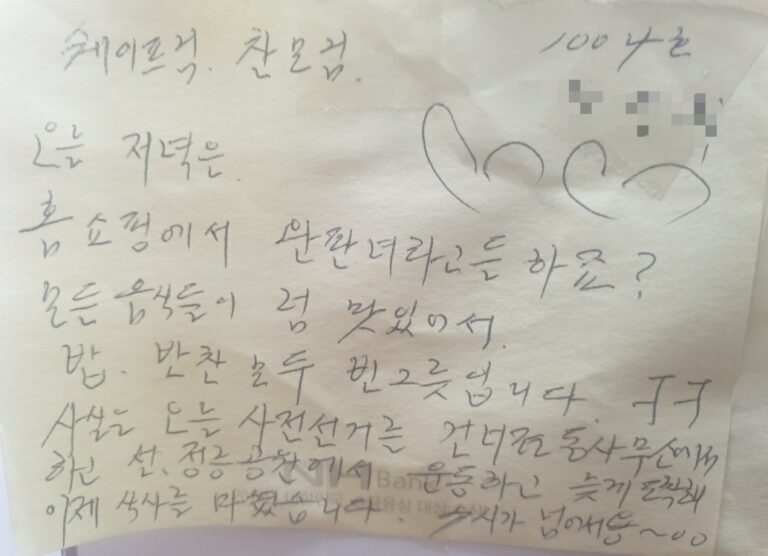 쉐이프걱. 찬모검. 100 4호
오늘 저녁은.
홈쇼핑에서 완판녀라고들 하죠?
모든 음식들이 넘 맛있어서.
밥. 반찬 모두 빈그릇입니다. ㅜㅜ
사실은 오늘 사전선거를 건너편 동사무소에서
하고 선.정릉공원에서 운동하고 늦게 도착해
이제 식사를 마쳤습니다. 시가 넘어서용~00
NH Bank